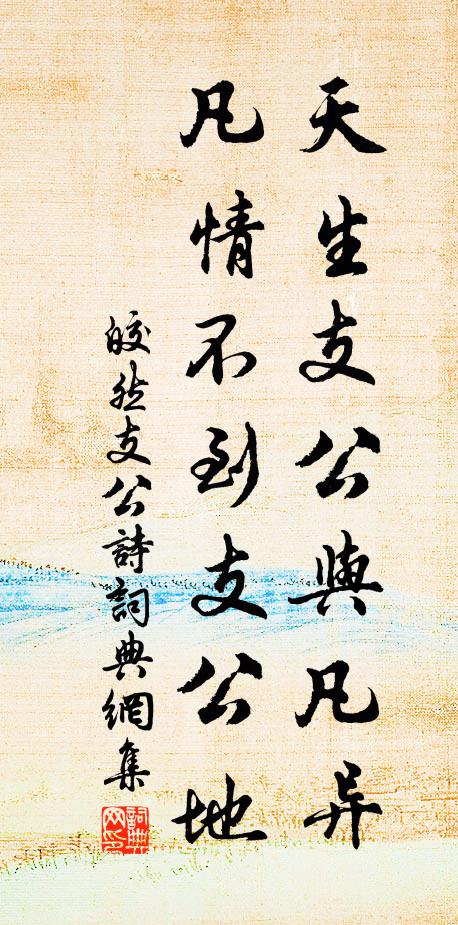 天生支公與凡异
凡情不到支公地
皎然支公詩詞典網集
詞典网印